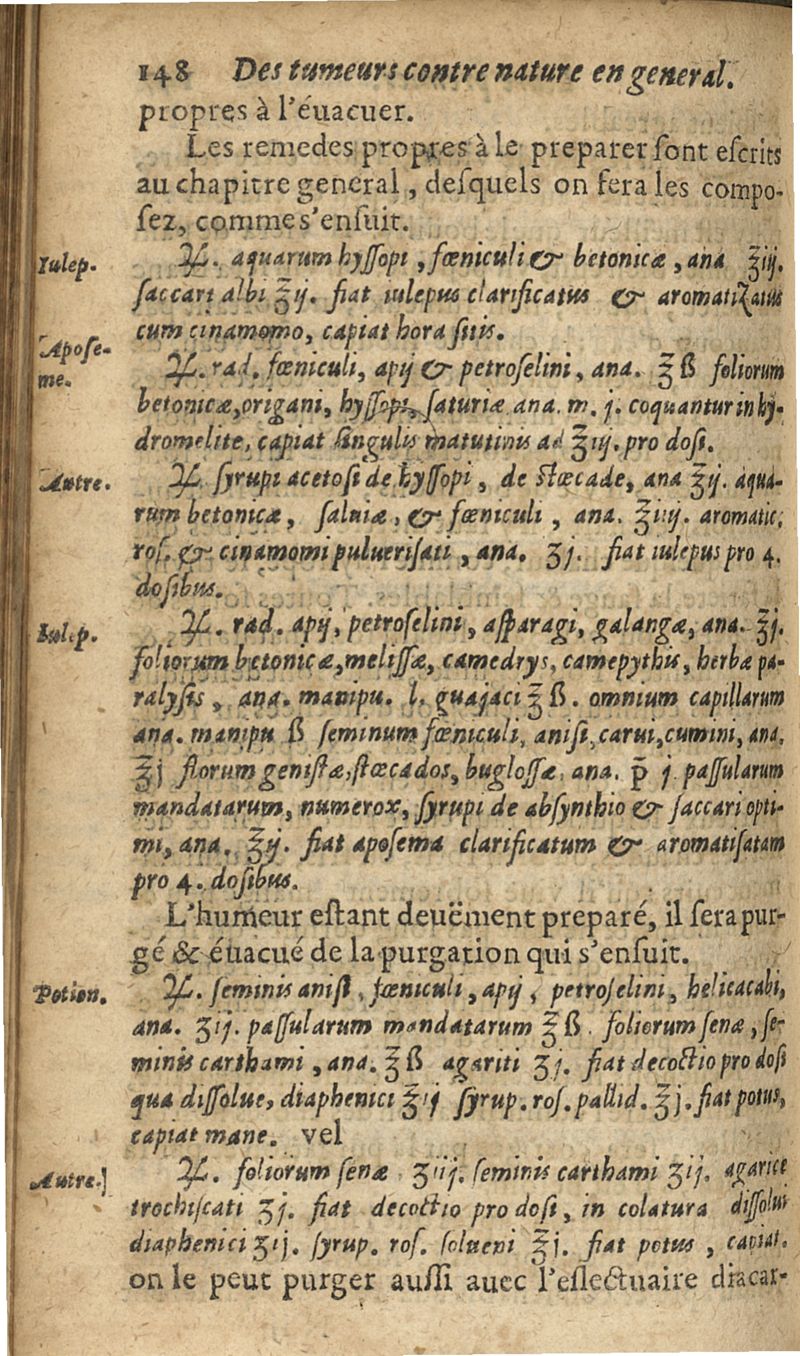 148 Des tumeurs contre nature en general.
propres à l'éuacuer.
Les remedes propres à le preparer sont escrits
au chapitre general, desquels on fera les compo-
sez, comme s'ensuit.
Iulep.
♃. aquarum hyssopi, fœniculi & betonicæ, ana ℥iij.
saccari albi ℥ij. fiat iulepus clarificatus & aromatizatus
cum cinamomo, capiat hora suis.
Apose-
me.
♃. rad. fœniculi, apij & petroselini, ana. ℥ß foliorum
betonicæ, origani, hyssopi, saturiæ ana. m. j. coquantur in hy-
dromelite, capiat singulis matutinis ad ℥iij. pro dosi.
Autre.
♃ syrupi acetosi de hyssopi, de stœcade, ana ℥ij. aqua-
rum betonicæ, saluiæ, & fœniculi, ana. ℥iiij. aromatic,
ros. & cinamomi puluerisati, ana. ʒj. fiat iulepus pro 4.
dosibus.
Iulep.
♃. rad. apij, petroselini, asparagi, galangæ, ana. ℥j.
foliorum betonicæ, melissæ, camedrys, camepythis, herbæ pa-
ralysis, ana. manipu. l. guajaci ℥ß. omnium capillarum
ana. manipu ß seminum fœniculi, anisi, carui, cumini, ana,
℥j florum genistæ, stœcados, buglossæ, ana. p̄ j. passularum
mandatarum, numerox, syrupi de absynthio & saccari opti-
mi, ana. ℥ij. fiat aposema clarificatum & aromatisatam
pro 4. dosibus.
L'humeur estant deuëment preparé, il sera pur-
gé & éuacué de la purgation qui s'ensuit.
Potion.
♃. seminis anisi, fœniculi, apij, petroselini, helicacabi,
ana. ʒij. passularum mandatarum ℥ß. foliorum senæ, se-
minis carthami, ana. ℥ß agariti ʒj. fiat decoctio pro dosi
qua dissolue, diaphenici ℥ij syrup. ros. pallid. ℥j. fiat potus,
capiat mane. vel
Autre.]
♃. foliorum senæ ʒiij. seminis carthami ʒij. agarice
trochiscati ʒj. fiat decoctio pro dosi, in colatura dissolue
diaphenici ʒij. syrup. ros. solueni ℥j. fiat potus, capiat.
on le peut purger aussi auec l'eslectuaire diacar-